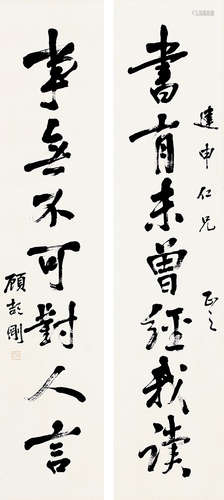 書有未曾經我讀
建申仁兄 正之
事無不可對人言
顧頡剛